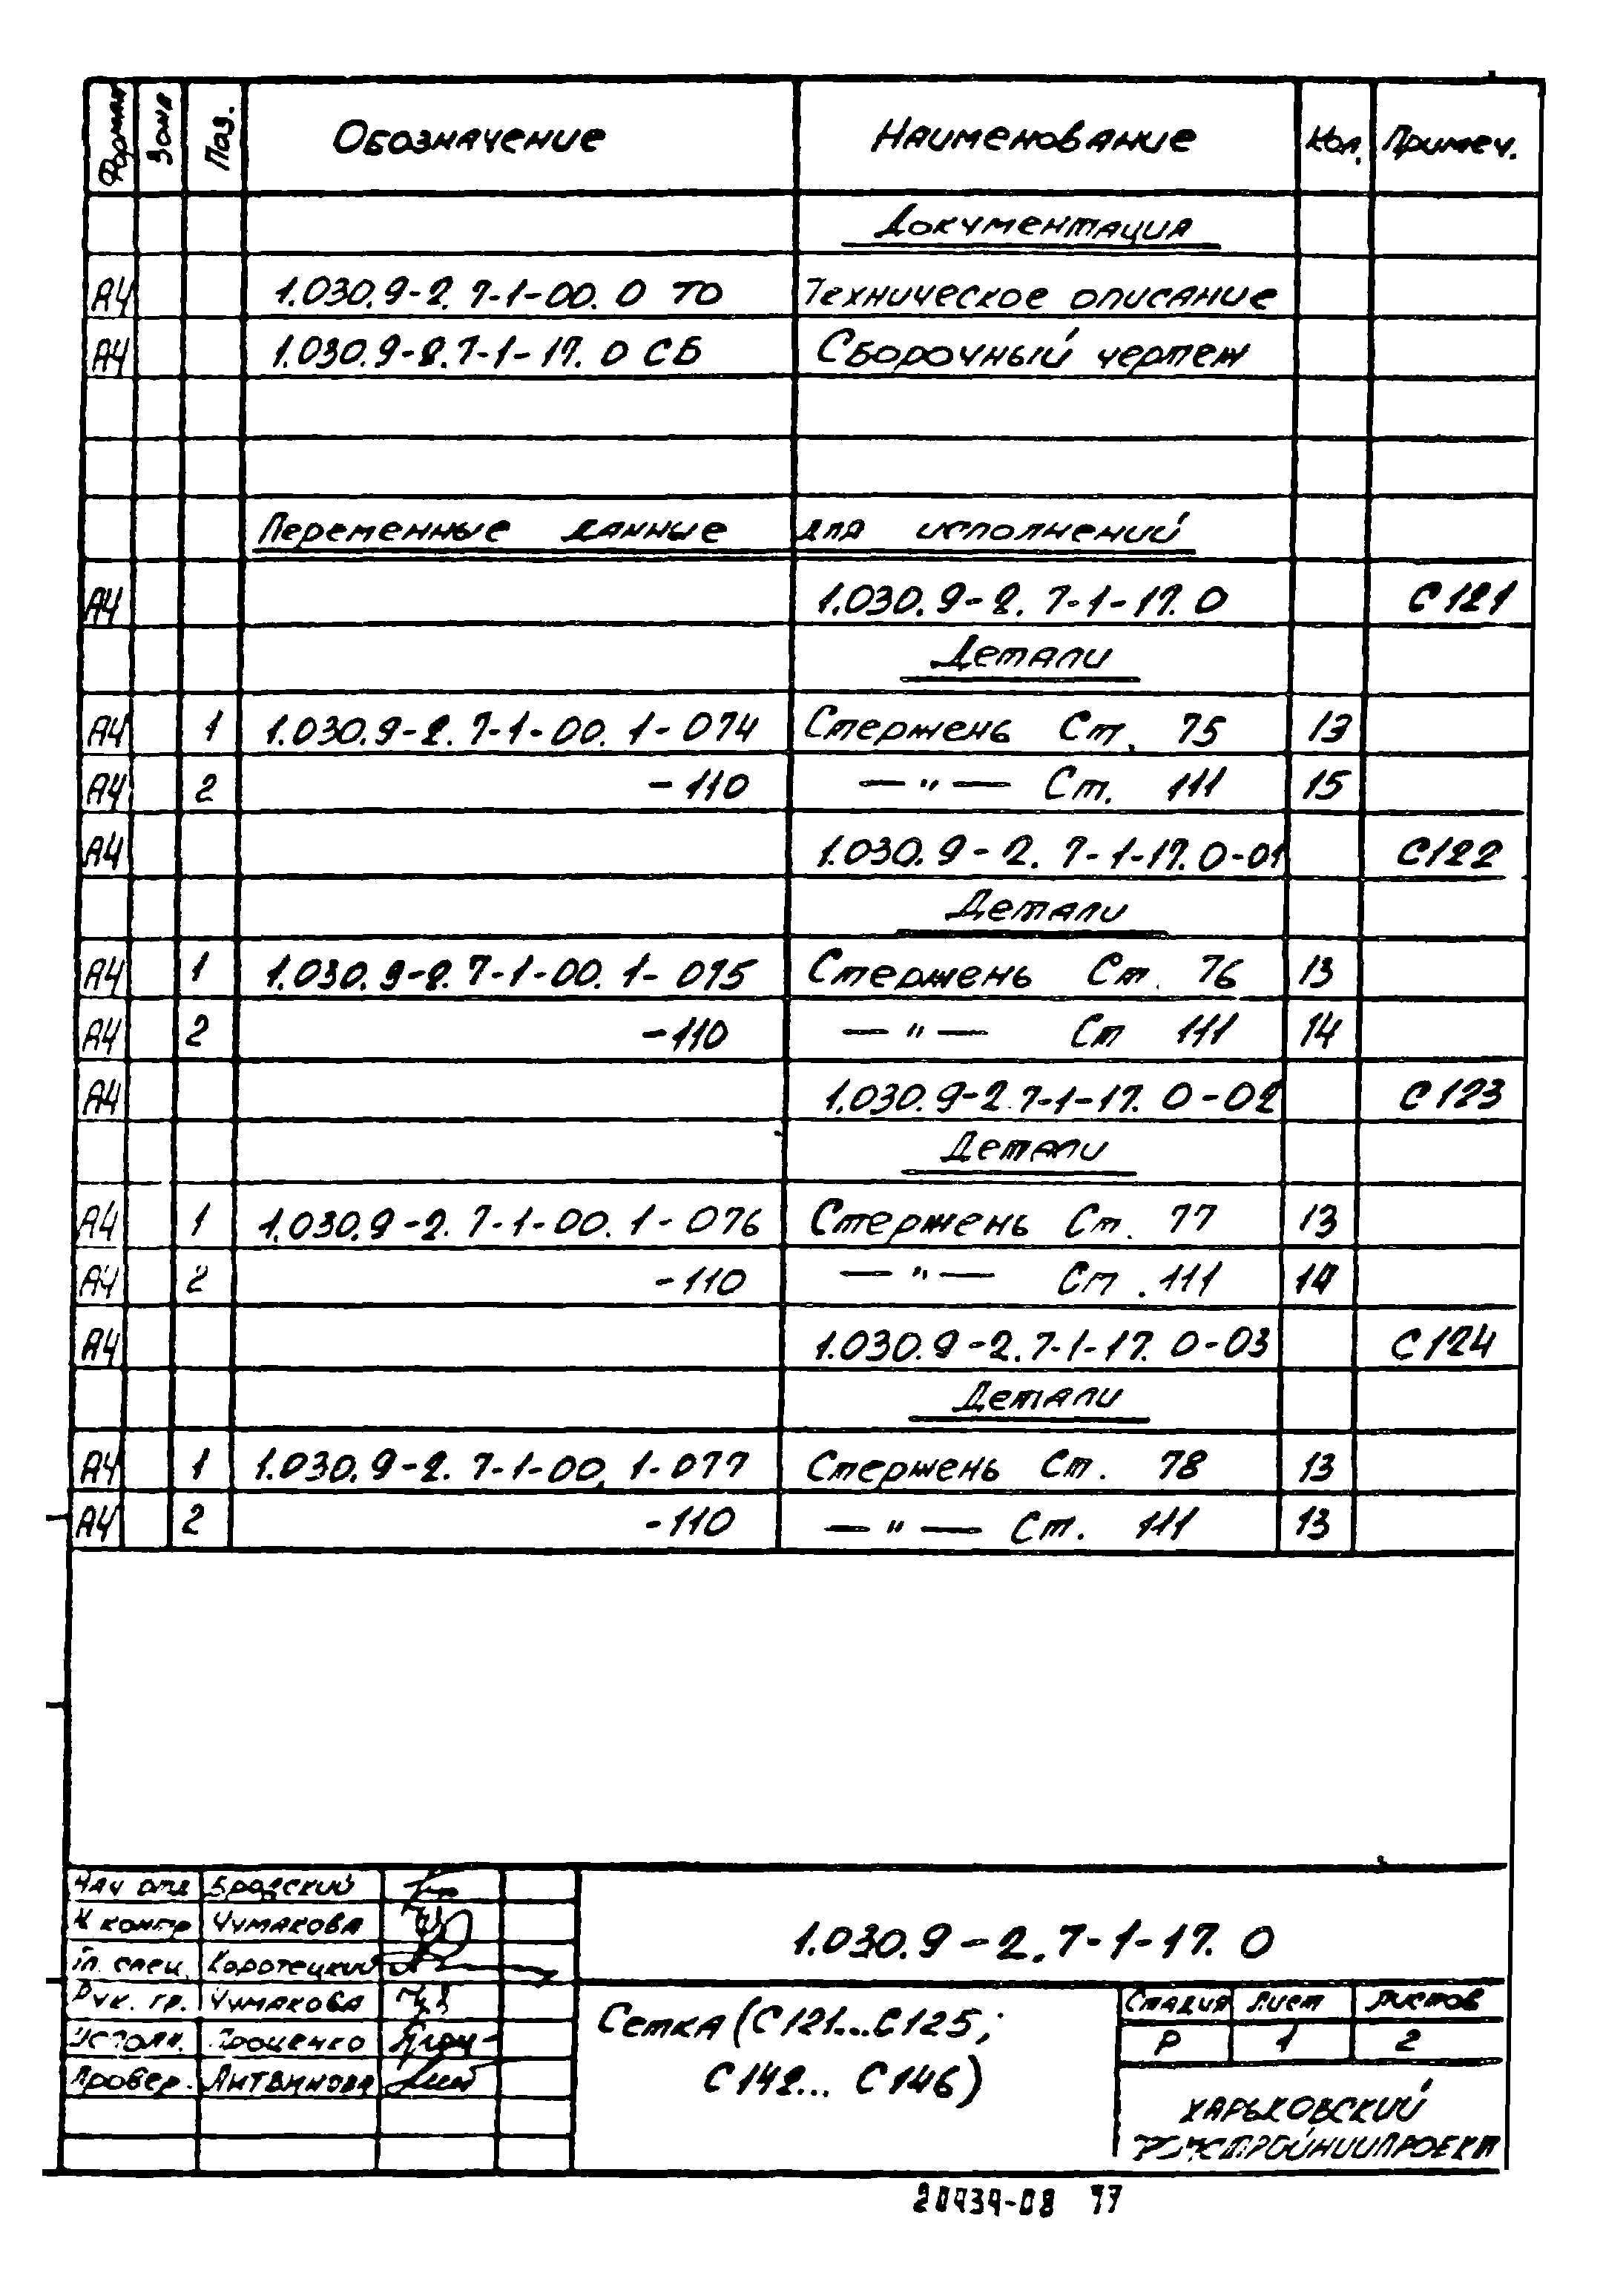 Формат Зона Поз. Обозначение Наименование Кол. Примеч.
Документация
А4 1.030.9-2.7-1-00.0 ТО Техническое описание
А4 1.030.9-2.7-1-17.0 СБ Сборочный чертеж
Переменные данные для исполнений
А4 1.030.9-2.7-1-17.0 С121
Детали
А4 1 1.030.9-2.7-1-00.1-074 Стержень Ст. 75 13
А4 2 -110 —"— Ст. 111 15
А4 1.030.9-2.7-1-17.0-01 С122
Детали
А4 1 1.030.9-2.7-1-00.1-075 Стержень Ст. 76 13
А4 2 -110 —"— Ст 111 14
А4 1.030.9-2.7-1-17.0-02 С123
Детали
А4 1 1.030.9-2.7-1-00.1-076 Стержень Ст. 77 13
А4 2 -110 —"— Ст. 111 14
А4 1.030.9-2.7-1-17.0-03 С124
Детали
А4 1 1.030.9-2.7-1-00.1-077 Стержень Ст. 78 13
А4 2 -110 —"— Ст. 111 13
Нач отд Бродский
Н контр Чумакова
Гл. спец. Коротецкий
Рук. гр. Чумакова
Исполн. Проценко
Провер. Литвинова
1.030.9-2.7-1-17.0
Сетка (С121...С125;
С142... С146)
Стадия Лист Листов
Р 1 2
ХАРЬКОВСКИЙ
20434-08 77